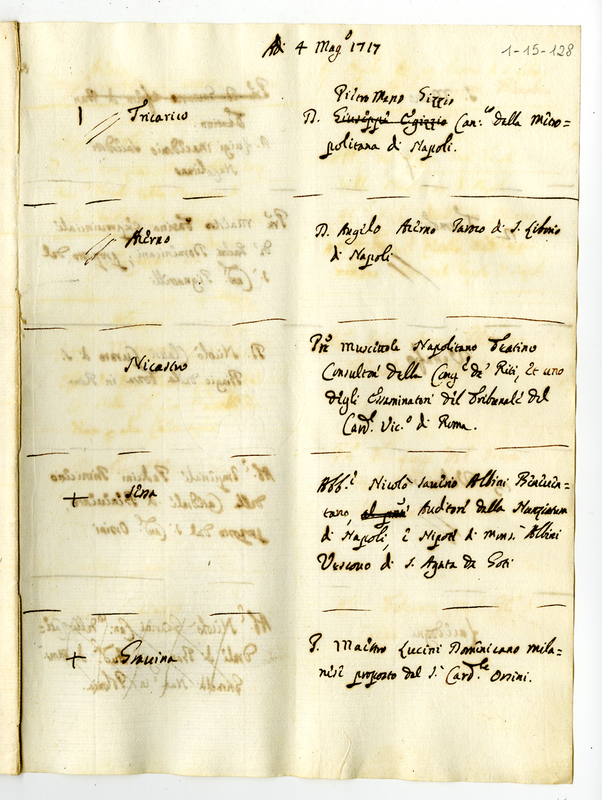 Adi 4 Magº 1717
1-15-128
Tricarico
Pietro Marco Gizzio
D. Giuseppe Gizzio Can.co della Metro=
politana di Napoli.
Acerno
D. Angelo Acerno Paroco di S. Liborio
di Napoli
Nicastro
Pre Muscettola Napolitano Teatino
Consultore della Cong.e de' Riti, et uno
degli Essaminatori del Tribunale del
Card.le Vic.º di Roma.
+ Sessa
Abb.e Nicolò Saverio Albini Beneven=
tano, Auditore della Nunziatura
di Napoli, e Nipote di Mons.r Albini
Vescovo di S. Agata de Goti
+ Gravina
P. Maestro Lucini Domenicano Mila=
nese proposto dal S.r Card.le Orsini.